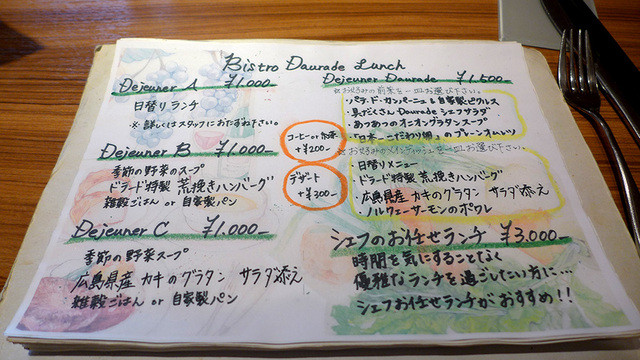 Bistro Daurade Lunch
Dejeuner A ¥1,000-
日替りランチ
※ 詳しくはスタッフにおたずね下さい。
Dejeuner B ¥1,000-
季節の野菜のスープ
ドラード特製 荒挽きハンバーグ
雑穀ごはん or 自家製パン
Dejeuner C ¥1,000-
季節の野菜スープ
広島県産 カキのグラタン サラダ添え
雑穀ごはん or 自家製パン
コーヒー or 紅茶
+¥200-
デザート
+¥300-
Dejeuner Daurade ¥1,500-
※お好みの前菜を一皿お選び下さい。
・パテ・ド・カンパーニュ & 自家製ピクルス
・具だくさん Daurade シェフサラダ
・あつあつのオニオングラタンスープ
・「日本一こだわり卵」のプレーンオムレツ
※お好みのメインディッシュを一皿お選び下さい。
・日替りメニュー
・ドラード特製 荒挽きハンバーグ
・広島県産 カキのグラタン サラダ添え
・ノルウェーサーモンのポワレ
シェフのお任せランチ ¥3,000-
時間を気にすることなく
優雅なランチを過ごしたい方に…
シェフお任せランチがおすすめ!!